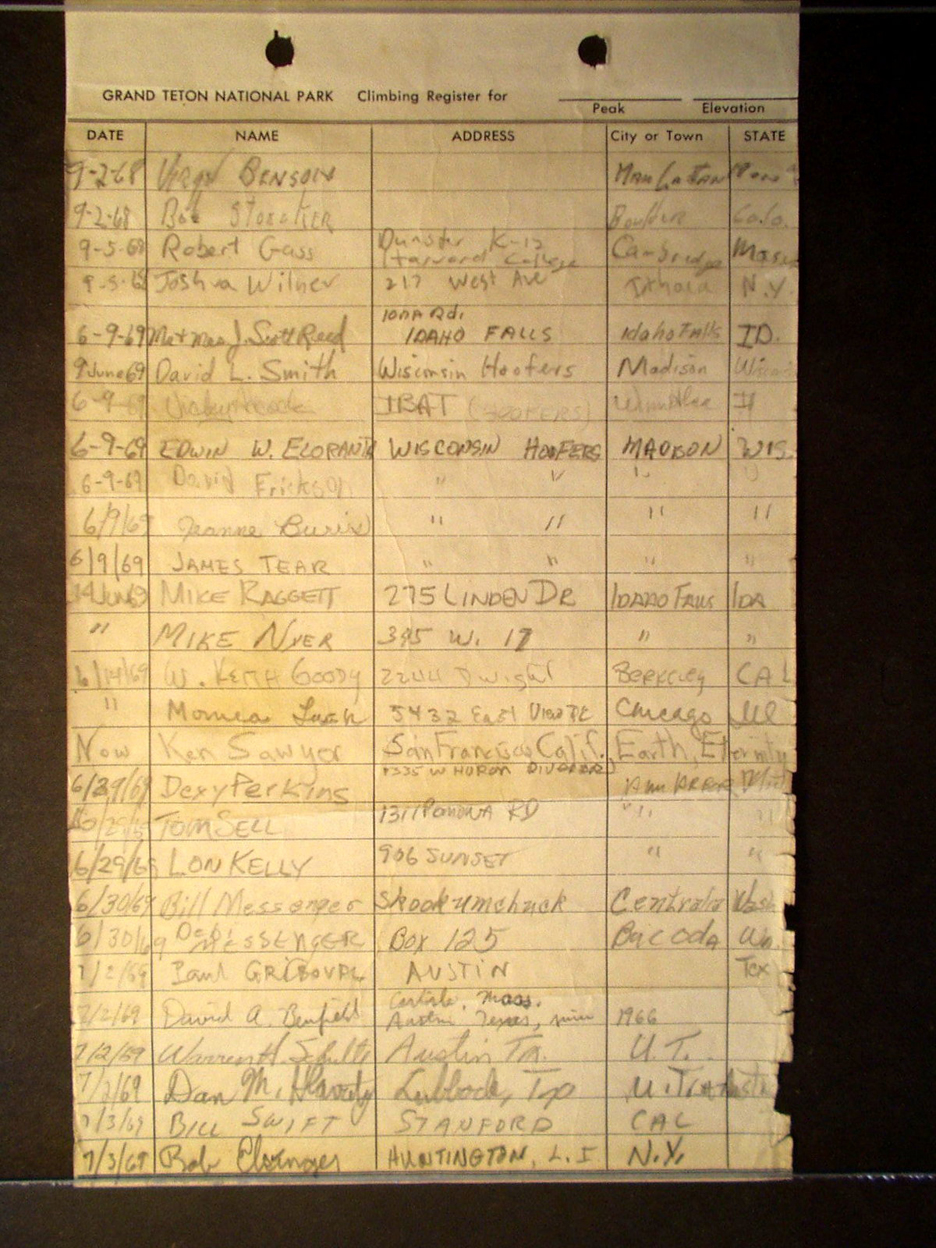 GRAND TETON NATIONAL PARK Climbing Register for
Peak Elevation
DATE NAME ADDRESS City or Town STATE
9-2-68 BENSON
9-2-68 Bob Boulder Colo.
9-5-68 Robert Gass Dunster K-12 Harvard College Cambridge Mass
9-5-68 Joshua Wilner 217 West Ave N.Y.
6-9-69 Mr + Mrs J. Scott Reed Iona Rd. IDAHO FALLS Idaho Falls ID.
9 June 69 David L. Smith Wisconsin Hoofers Madison
6-9-69 IBAT (HOOFERS)
6-9-69 EDWIN W. ELORANTA WISCONSIN HOOFERS MADISON WIS
6-9-69 David Erickson " " " "
6/9/69 Jeanne " " " "
6/9/69 JAMES TEAR " " " "
14 JUN 69 MIKE RAGGETT 275 LINDEN DR IDAHO FALLS IDA
" MIKE NYER 395 W. 17 " "
6/14/69 W. KEITH GOODY Dwight BERKELEY CAL
" Monica 5432 East View Pk Chicago Ill
Now Ken Sawyer San Francisco Calif. Earth, Eternity
6/29/69 Dexy Perkins 1335 W HURON Ann ARBOR
TOM SELL 1311 POMONA RD " "
6/29/69 LON KELLY 906 SUNSET " "
6/30/69 Bill Messenger Skookumchuck Centralia Wash
6/30/69 MESSENGER Box 125 Bucoda Wn.
7/2/69 Paul AUSTIN Tex
7/2/69 David A. Benfield Carlisle, Mass. Austin Texas, 1966
7/2/69 Warren H. Austin Tx. U.T.
7/2/69 Dan M. Lubbock, U. T.
7/3/69 BILL SWIFT STANFORD CAL
7/3/69 Bob HUNTINGTON, L.I. N.Y.